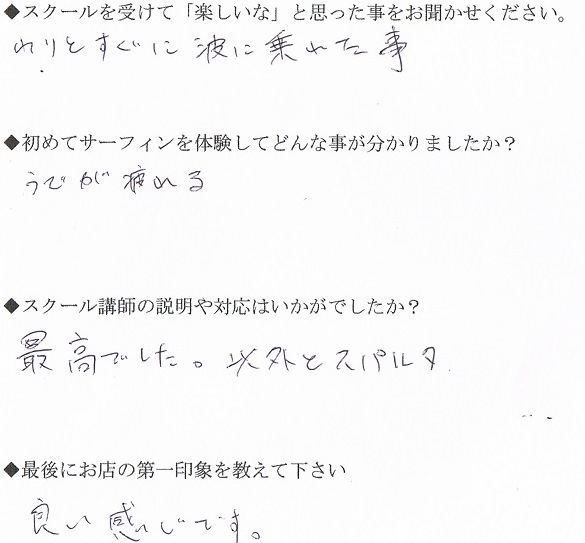 ◆スクールを受けて「楽しいな」と思った事をお聞かせください。
わりとすぐに波に乗れた事
◆初めてサーフィンを体験してどんな事が分かりましたか？
うでが疲れる
◆スクール講師の説明や対応はいかがでしたか？
最高でした。以外とスパルタ
◆最後にお店の第一印象を教えて下さい
良い感じです。